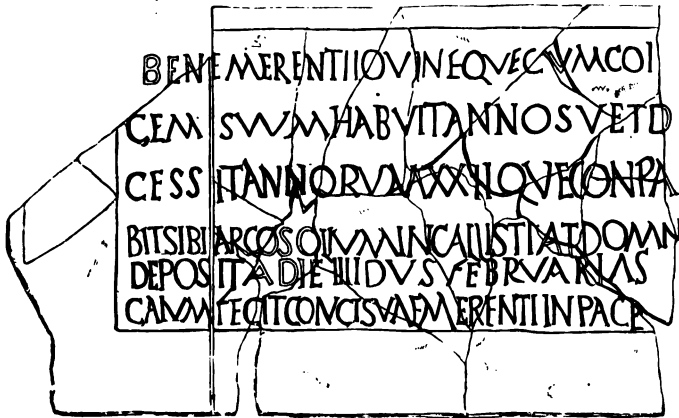 BENEMERENTIIOVINEQVECVMCOI
CEMSVVMHABVITANNOSVETD
CESSITANNORVMXXIIQVECONPA
BITSIBIARCOSOLIVMINCALLISTIATDOMN
DEPOSITADIEIIIIDVSFEBRVARIAS
CAIVMFECITCOIVCISVAEMERENTIINPACE